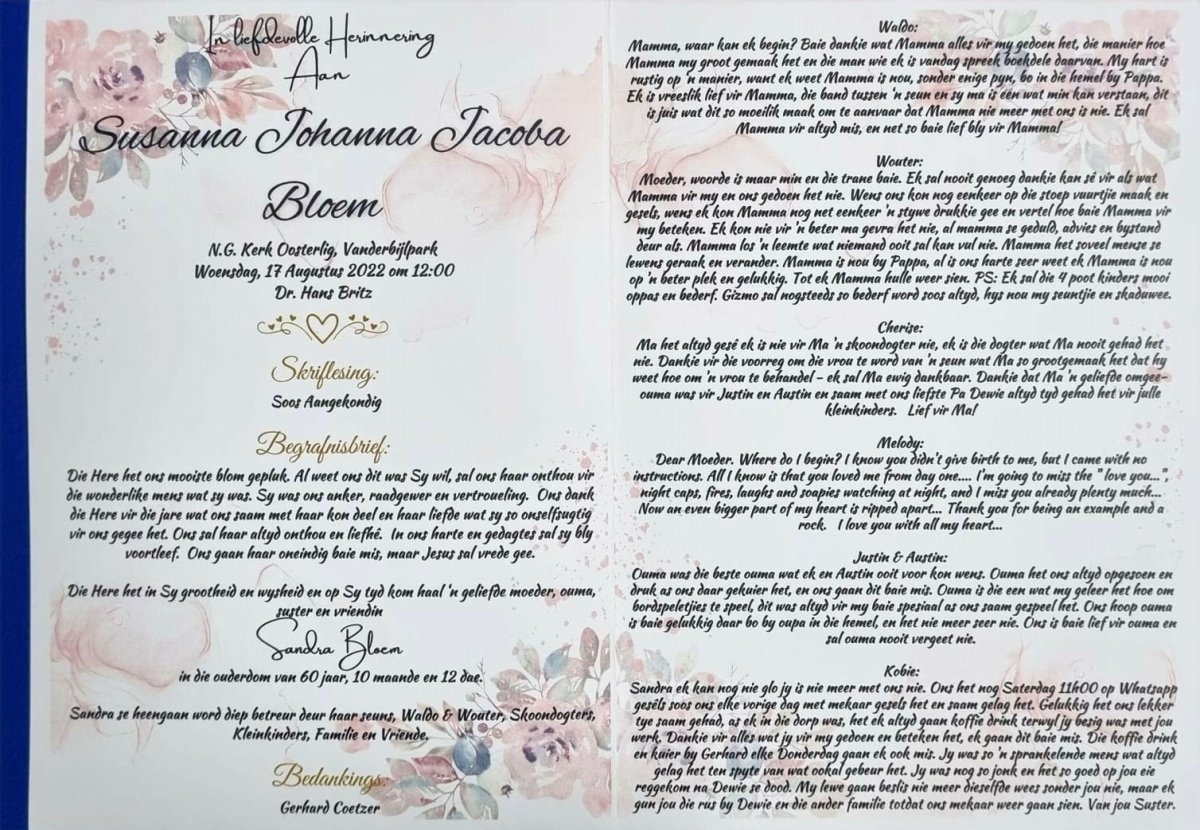 In liefdevolle Herinnering
Aan
Susanna Johanna Jacoba
Bloem
N.G. Kerk Oosterlig, Vanderbijlpark
Woensdag, 17 Augustus 2022 om 12:00
Dr. Hans Britz
Skriflesing:
Soos Aangekondig
Begrafnisbrief:
Die Here het ons mooiste blom gepluk. Al weet ons dit was Sy wil, sal ons haar onthou vir
die wonderlike mens wat sy was. Sy was ons anker, raadgewer en vertroueling. Ons dank
die Here vir die jare wat ons saam met haar kon deel en haar liefde wat sy so onselfsugtig
vir ons gegee het. Ons sal haar altyd onthou en liefhê. In ons harte en gedagtes sal sy bly
voortleef. Ons gaan haar oneindig baie mis, maar Jesus sal vrede gee.
Die Here het in Sy grootheid en wysheid en op Sy tyd kom haal 'n geliefde moeder, ouma,
suster en vriendin
Sandra Bloem
in die ouderdom van 60 jaar, 10 maande en 12 dae.
Sandra se heengaan word diep betreur deur haar seuns, Waldo & Wouter, Skoondogters,
Kleinkinders, Familie en Vriende.
Bedankings:
Gerhard Coetzer
Waldo:
Mamma, waar kan ek begin? Baie dankie wat Mamma alles vir my gedoen het, die manier hoe
Mamma my groot gemaak het en die man wie ek is vandag spreek boekdele daarvan. My hart is
rustig op 'n manier, want ek weet Mamma is nou, sonder enige pyn, bo in die hemel by Pappa.
Ek is vreeslik lief vir Mamma, die band tussen 'n seun en sy ma is een wat min kan verstaan, dit
is juis wat dit so moeilik maak om te aanvaar dat Mamma nie meer met ons is nie. Ek sal
Mamma vir altyd mis, en net so baie lief bly vir Mamma!
Wouter:
Moeder, woorde is maar min en die trane baie. Ek sal nooit genoeg dankie kan sê vir als wat
Mamma vir my en ons gedoen het nie. Wens ons kon nog eenkeer op die stoep vuurtjie maak en
gesels, wens ek kon Mamma nog net eenkeer 'n stywe drukkie gee en vertel hoe baie Mamma vir
my beteken. Ek kon nie vir 'n beter ma gevra het nie, al mamma se geduld, advies en bystand
deur als. Mamma los 'n leemte wat niemand ooit sal kan vul nie. Mamma het soveel mense se
lewens geraak en verander. Mamma is nou by Pappa, al is ons harte seer weet ek Mamma is nou
op 'n beter plek en gelukkig. Tot ek Mamma hulle weer sien. PS: Ek sal die 4 poot kinders mooi
oppas en bederf. Gizmo sal nogsteeds so bederf word soos altyd, hys nou my seuntjie en skaduwee.
Cherise:
Ma het altyd gesê ek is nie vir Ma 'n skoondogter nie, ek is die dogter wat Ma nooit gehad het
nie. Dankie vir die voorreg om die vrou te word van 'n seun wat Ma so grootgemaak het dat hy
weet hoe om 'n vrou te behandel - ek sal Ma ewig dankbaar. Dankie dat Ma 'n geliefde omgee-
ouma was vir Justin en Austin en saam met ons liefste Pa Dewie altyd tyd gehad het vir julle
kleinkinders. Lief vir Ma!
Melody:
Dear Moeder. Where do I begin? I know you didn't give birth to me, but I came with no
instructions. All I know is that you loved me from day one.... I'm going to miss the "love you...",
night caps, fires, laughs and soapies watching at night, and I miss you already plenty much...
Now an even bigger part of my heart is ripped apart... Thank you for being an example and a
rock. I love you with all my heart...
Justin & Austin:
Ouma was die beste ouma wat ek en Austin ooit voor kon wens. Ouma het ons altyd opgesoen en
druk as ons daar gekuier het, en ons gaan dit baie mis. Ouma is die een wat my geleer het hoe om
bordspeletjies te speel, dit was altyd vir my baie spesiaal as ons saam gespeel het. Ons hoop ouma
is baie gelukkig daar bo by oupa in die hemel, en het nie meer seer nie. Ons is baie lief vir ouma en
sal ouma nooit vergeet nie.
Kobie:
Sandra ek kan nog nie glo jy is nie meer met ons nie. Ons het nog Saterdag 11h00 op Whatsapp
gesels soos ons elke vorige dag met mekaar gesels het en saam gelag het. Gelukkig het ons lekker
tye saam gehad, as ek in die dorp was, het ek altyd gaan koffie drink terwyl jy besig was met jou
werk. Dankie vir alles wat jy vir my gedoen en beteken het, ek gaan dit baie mis. Die koffie drink
en kuier by Gerhard elke Donderdag gaan ek ook mis. Jy was so 'n sprankelende mens wat altyd
gelag het ten spyte van wat ookal gebeur het. Jy was nog so jonk en het so goed op jou eie
reggekom na Dewie se dood. My lewe gaan beslis nie meer dieselfde wees sonder jou nie, maar ek
gun jou die rus by Dewie en die ander familie totdat ons mekaar weer gaan sien. Van jou Suster.